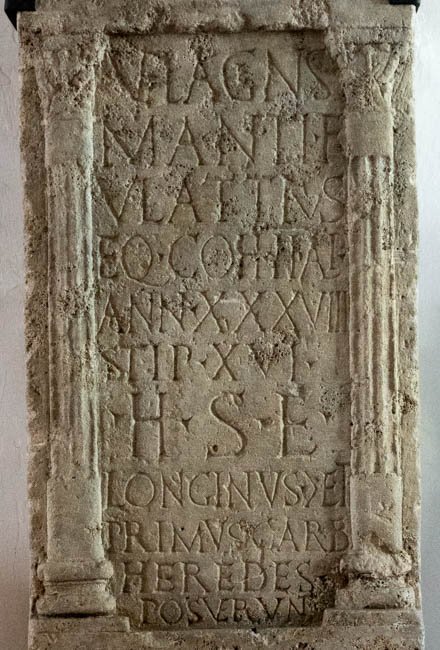 MANTI·F
VLATTIVS
EQ·COH
ANN·XXXVIII
STIP·XVI·
·H·S·E·
LONGINVS
PRIMVS·CARB
HEREDES
POSVERVN